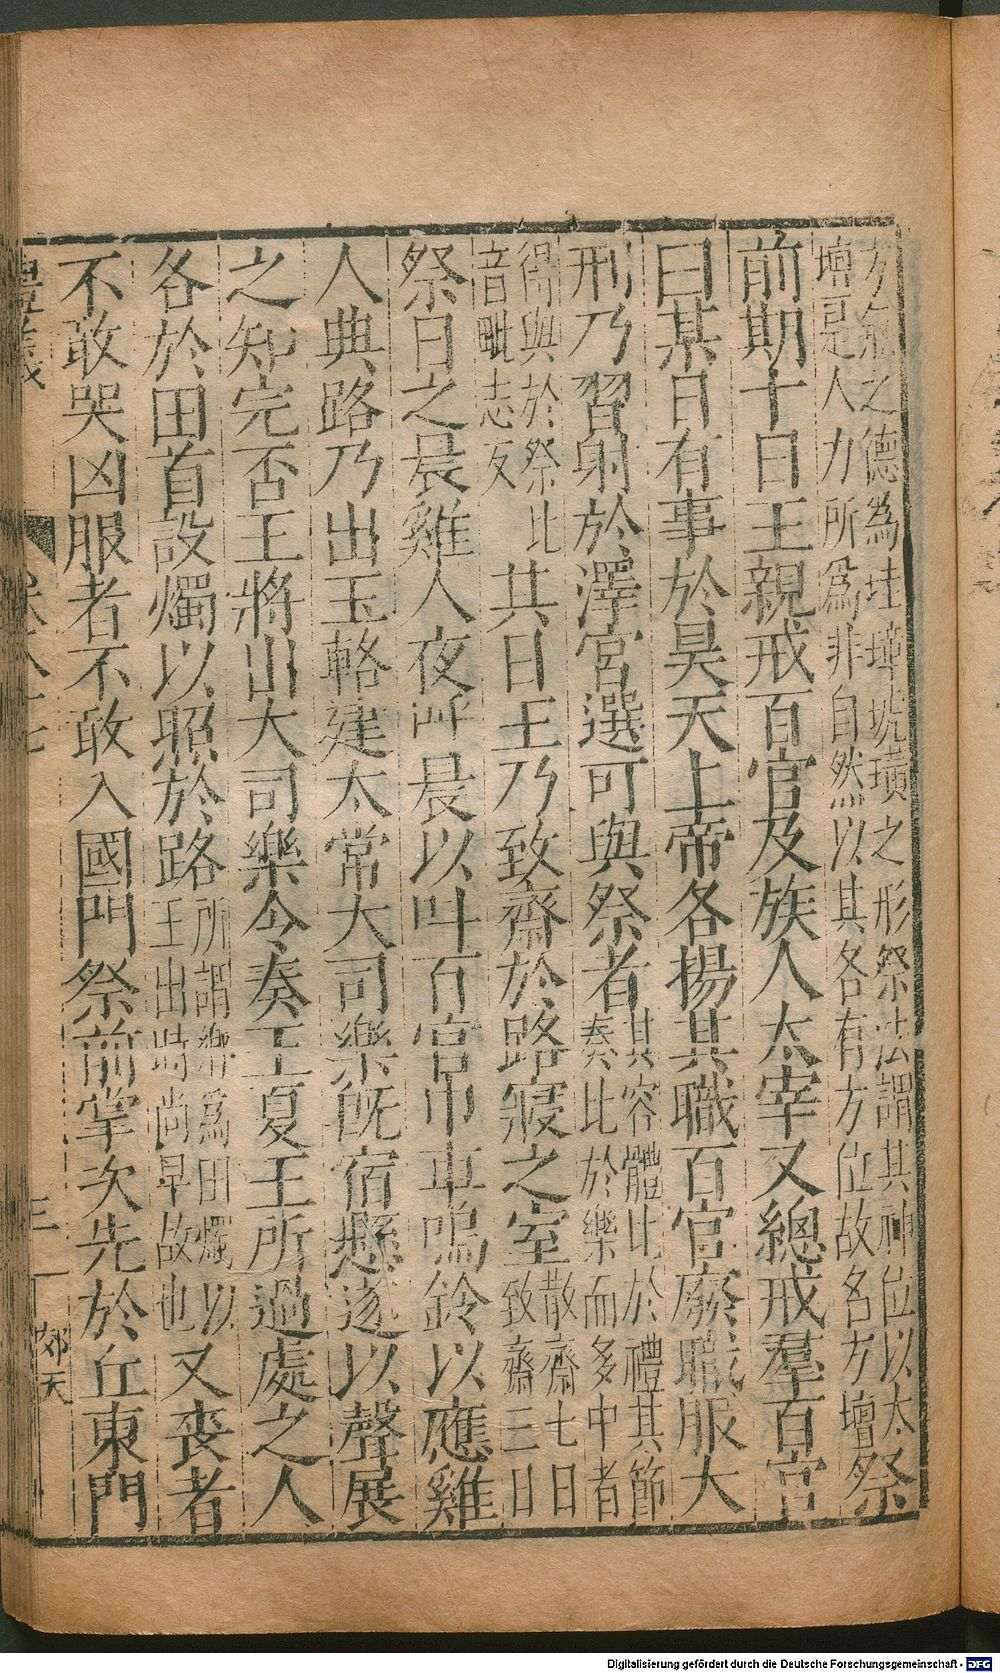 方無之德為圭璋琥璜之形祭法謂其神位以太
壇是人力所爲非自然以其各有方位故名方壇祭
前期十日王親戒百官及族人太宰又總戒羣百官
曰某日有事於昊天上帝各揚其職百官廢職服大
刑乃習射於澤宮選可與祭者其容體比於禮其節
奏比於樂而多中者
得與於祭比
音毗志反
共日王乃致齋於路寢之室散齋七日
致齋三日
祭日之晨雞人夜呼晨以叫百官巾車鳴鈴以應雞
人典路乃出玉輅建太常大司樂旣宿懸遂以聲展
之知完否王將出大司樂令奏王夏王所過處之人
各於田首設燭以照於路所謂鄉爲田燭以
王出時尚早故也
又喪者
不敢哭凶服者不敢入國門祭前掌次先於丘東門
三
郊天
Digitalisierung gefördert durch die Deutsche Forschungsgemeinschaft - DFG